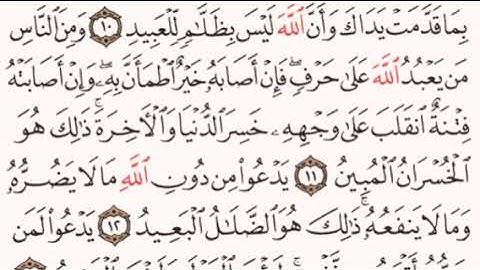 بِمَا قَدَّمَتۡ يَدَاكَ وَأَنَّ ٱللَّهَ لَيۡسَ بِظَلَّٰمٖ لِّلۡعَبِيدِ ١٠ وَمِنَ ٱلنَّاسِ
مَن يَعۡبُدُ ٱللَّهَ عَلَىٰ حَرۡفٖۖ فَإِنۡ أَصَابَهُۥ خَيۡرٌ ٱطۡمَأَنَّ بِهِۦۖ وَإِنۡ أَصَابَتۡهُ
فِتۡنَةٌ ٱنقَلَبَ عَلَىٰ وَجۡهِهِۦ خَسِرَ ٱلدُّنۡيَا وَٱلۡأٓخِرَةَۚ ذَٰلِكَ هُوَ
ٱلۡخُسۡرَانُ ٱلۡمُبِينُ ١١ يَدۡعُواْ مِن دُونِ ٱللَّهِ مَا لَا يَضُرُّهُۥ
وَمَا لَا يَنفَعُهُۥۚ ذَٰلِكَ هُوَ ٱلضَّلَٰلُ ٱلۡبَعِيدُ ١٢ يَدۡعُواْ لَمَن